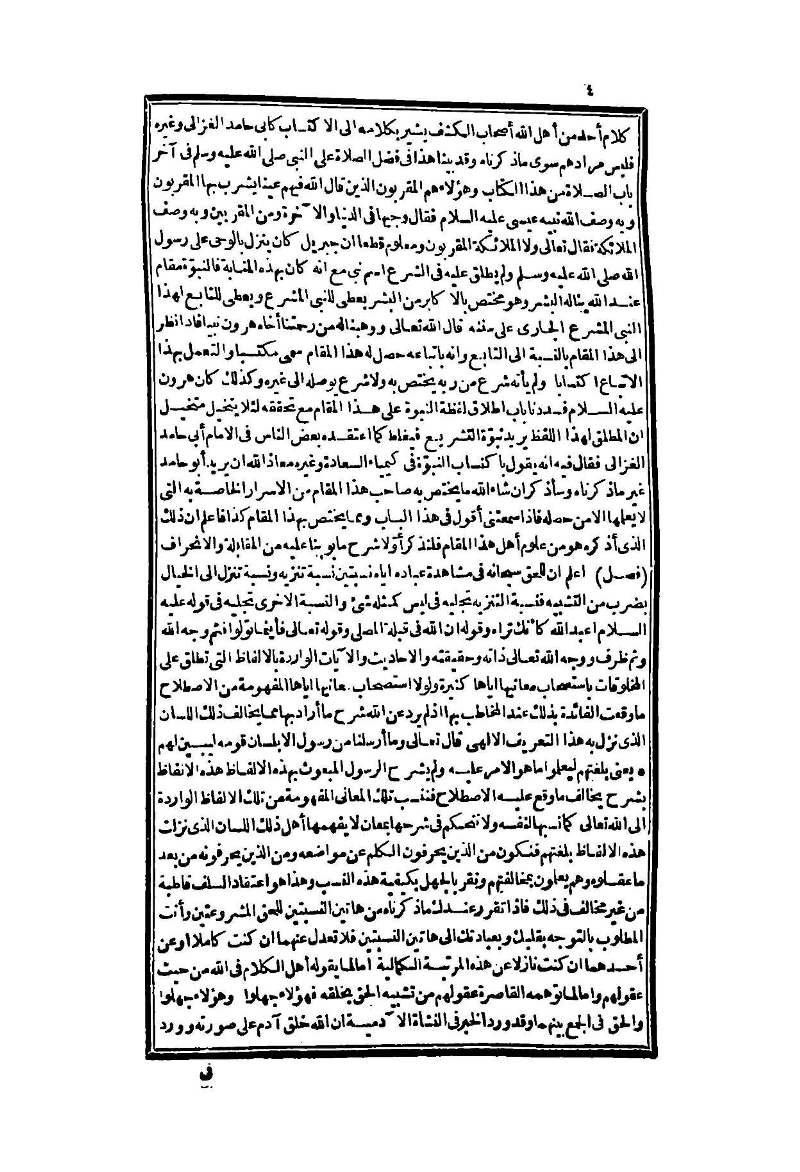 ٤
كلام أحد من أهل الله أصحاب الكشف يشير بكلامه الى الاكتساب كأبى حامد الغزالى وغيره
فليس مرادهم سوى ماذكرناه وقد بينا هذا فى فضل الصلاة على النبى صلى الله عليه وسلم فى آخر
باب الصلاة من هذا الكتاب وهؤلاء هم المقربون الذين قال الله فيهم عينا يشرب بها المقربون
وبه وصف الله نبيه عيسى عليه السلام فقال وجيها فى الدنيا والآخرة ومن المقربين وبه وصف
الملائكة فقال تعالى ولا الملائكة المقربون ومعلوم قطعا ان جبريل كان ينزل بالوحى على رسول
الله صلى الله عليه وسلم ولم يطلق عليه فى الشرع اسم نبى مع انه كان بهذه المثابة فالنبوة مقام
عند الله يناله البشر وهو مختص بالاكابر من البشر يعطى للنبى المشرع ويعطى للتابع لهذا
النبى المشرع الجارى على سنته قال الله تعالى ووهبنا له من رحمتنا أخاه هرون نبيا فاذا نظر
الى هذا المقام بالنسبة الى التابع وانه باتباعه حصل له هذا المقام سمى مكتسبا والتعمل بهذا
الاتباع اكتسابا ولم يأته شرع من ربه يختص به ولا شرع يوصله الى غيره وكذلك كان هرون
عليه السلام فسددنا باب اطلاق لفظة النبوة على هذا المقام مع تحققه لئلا يتخيل متخيل
ان المطلق لهذا اللفظ يريد نبوة التشريع فيغلط كما اعتقده بعض الناس فى الامام أبى حامد
الغزالى فقال فيه انه يقول باكتساب النبوة فى كيمياء السعادة وغيره معاذ الله ان يريد أبو حامد
غير ماذكرناه وسأذكر ان شاء الله ما يختص به صاحب هذا المقام من الاسرار الخاصة به التى
لا يعلمها الا من حصله فاذا سمعتنى أقول فى هذا الباب ومما يختص بهذا المقام كذا فاعلم ان ذلك
الذى أذكره هو من علوم أهل هذا المقام فلنذكر أولا شرح ما بوبنا عليه من المقابلة والانحراف
(فصل) اعلم ان للحق سبحانه فى مشاهدة عباده اياه نسبتين نسبة تنزيه ونسبة تنزل الى الخيال
بضرب من التشبيه فنسبة التنزيه تجليه فى ليس كمثله شئ والنسبة الاخرى تجليه فى قوله عليه
السلام اعبد الله كأنك تراه وقوله ان الله فى قبلة المصلى وقوله تعالى فأينما تولوا فثم وجه الله
وثم ظرف ووجه الله تعالى ذاته وحقيقته والاحاديث والآيات الواردة بالالفاظ التى تطلق على
المخلوقات باستصحاب معانيها اياها كثيرة ولولا استصحاب معانيها اياها المفهومة من الاصطلاح
ما وقعت الفائدة بذلك عند المخاطب بها اذ لم يرد عن الله شرح ما أراد بها مما يخالف ذلك اللسان
الذى نزل به هذا التعريف الالهى قال تعالى وما أرسلنا من رسول الا بلسان قومه ليبين لهم
يعنى بلغتهم ليعلموا ما هو الامر عليه ولم يشرح الرسول المبعوث بهذه الالفاظ هذه الالفاظ
بشرح يخالف ما وقع عليه الاصطلاح فننسب تلك المعانى المفهومة من تلك الالفاظ الواردة
الى الله تعالى كما نسبها لنفسه ولا نتحكم فى شرحها بمعان لا يفهمها أهل ذلك اللسان الذى نزلت
هذه الالفاظ بلغتهم فنكون من الذين يحرفون الكلم عن مواضعه ومن الذين يحرفونه من بعد
ما عقلوه وهم يعلمون بمخالفتهم ونقر بالجهل بكيفية هذه النسب وهذا هو اعتقاد السلف قاطبة
من غير مخالف فى ذلك فاذا تقرر عندك ماذكرناه من هاتين النسبتين للحق المشروعتين وأنت
المطلوب بالتوجه بقلبك وبعبادتك الى هاتين النسبتين فلا تعدل عنهما ان كنت كاملا أو عن
أحدهما ان كنت نازلا عن هذه المرتبة الكمالية اما لما يقوله أهل الكلام فى الله من حيث
عقولهم واما لما توهمه القاصرة عقولهم من تشبيه الحق بخلقه فهؤلاء جهلوا وهؤلاء جهلوا
والحق فى الجمع بينهما وقد ورد الخبر فى النشأة الآدمية ان الله خلق آدم على صورته وورد
فى